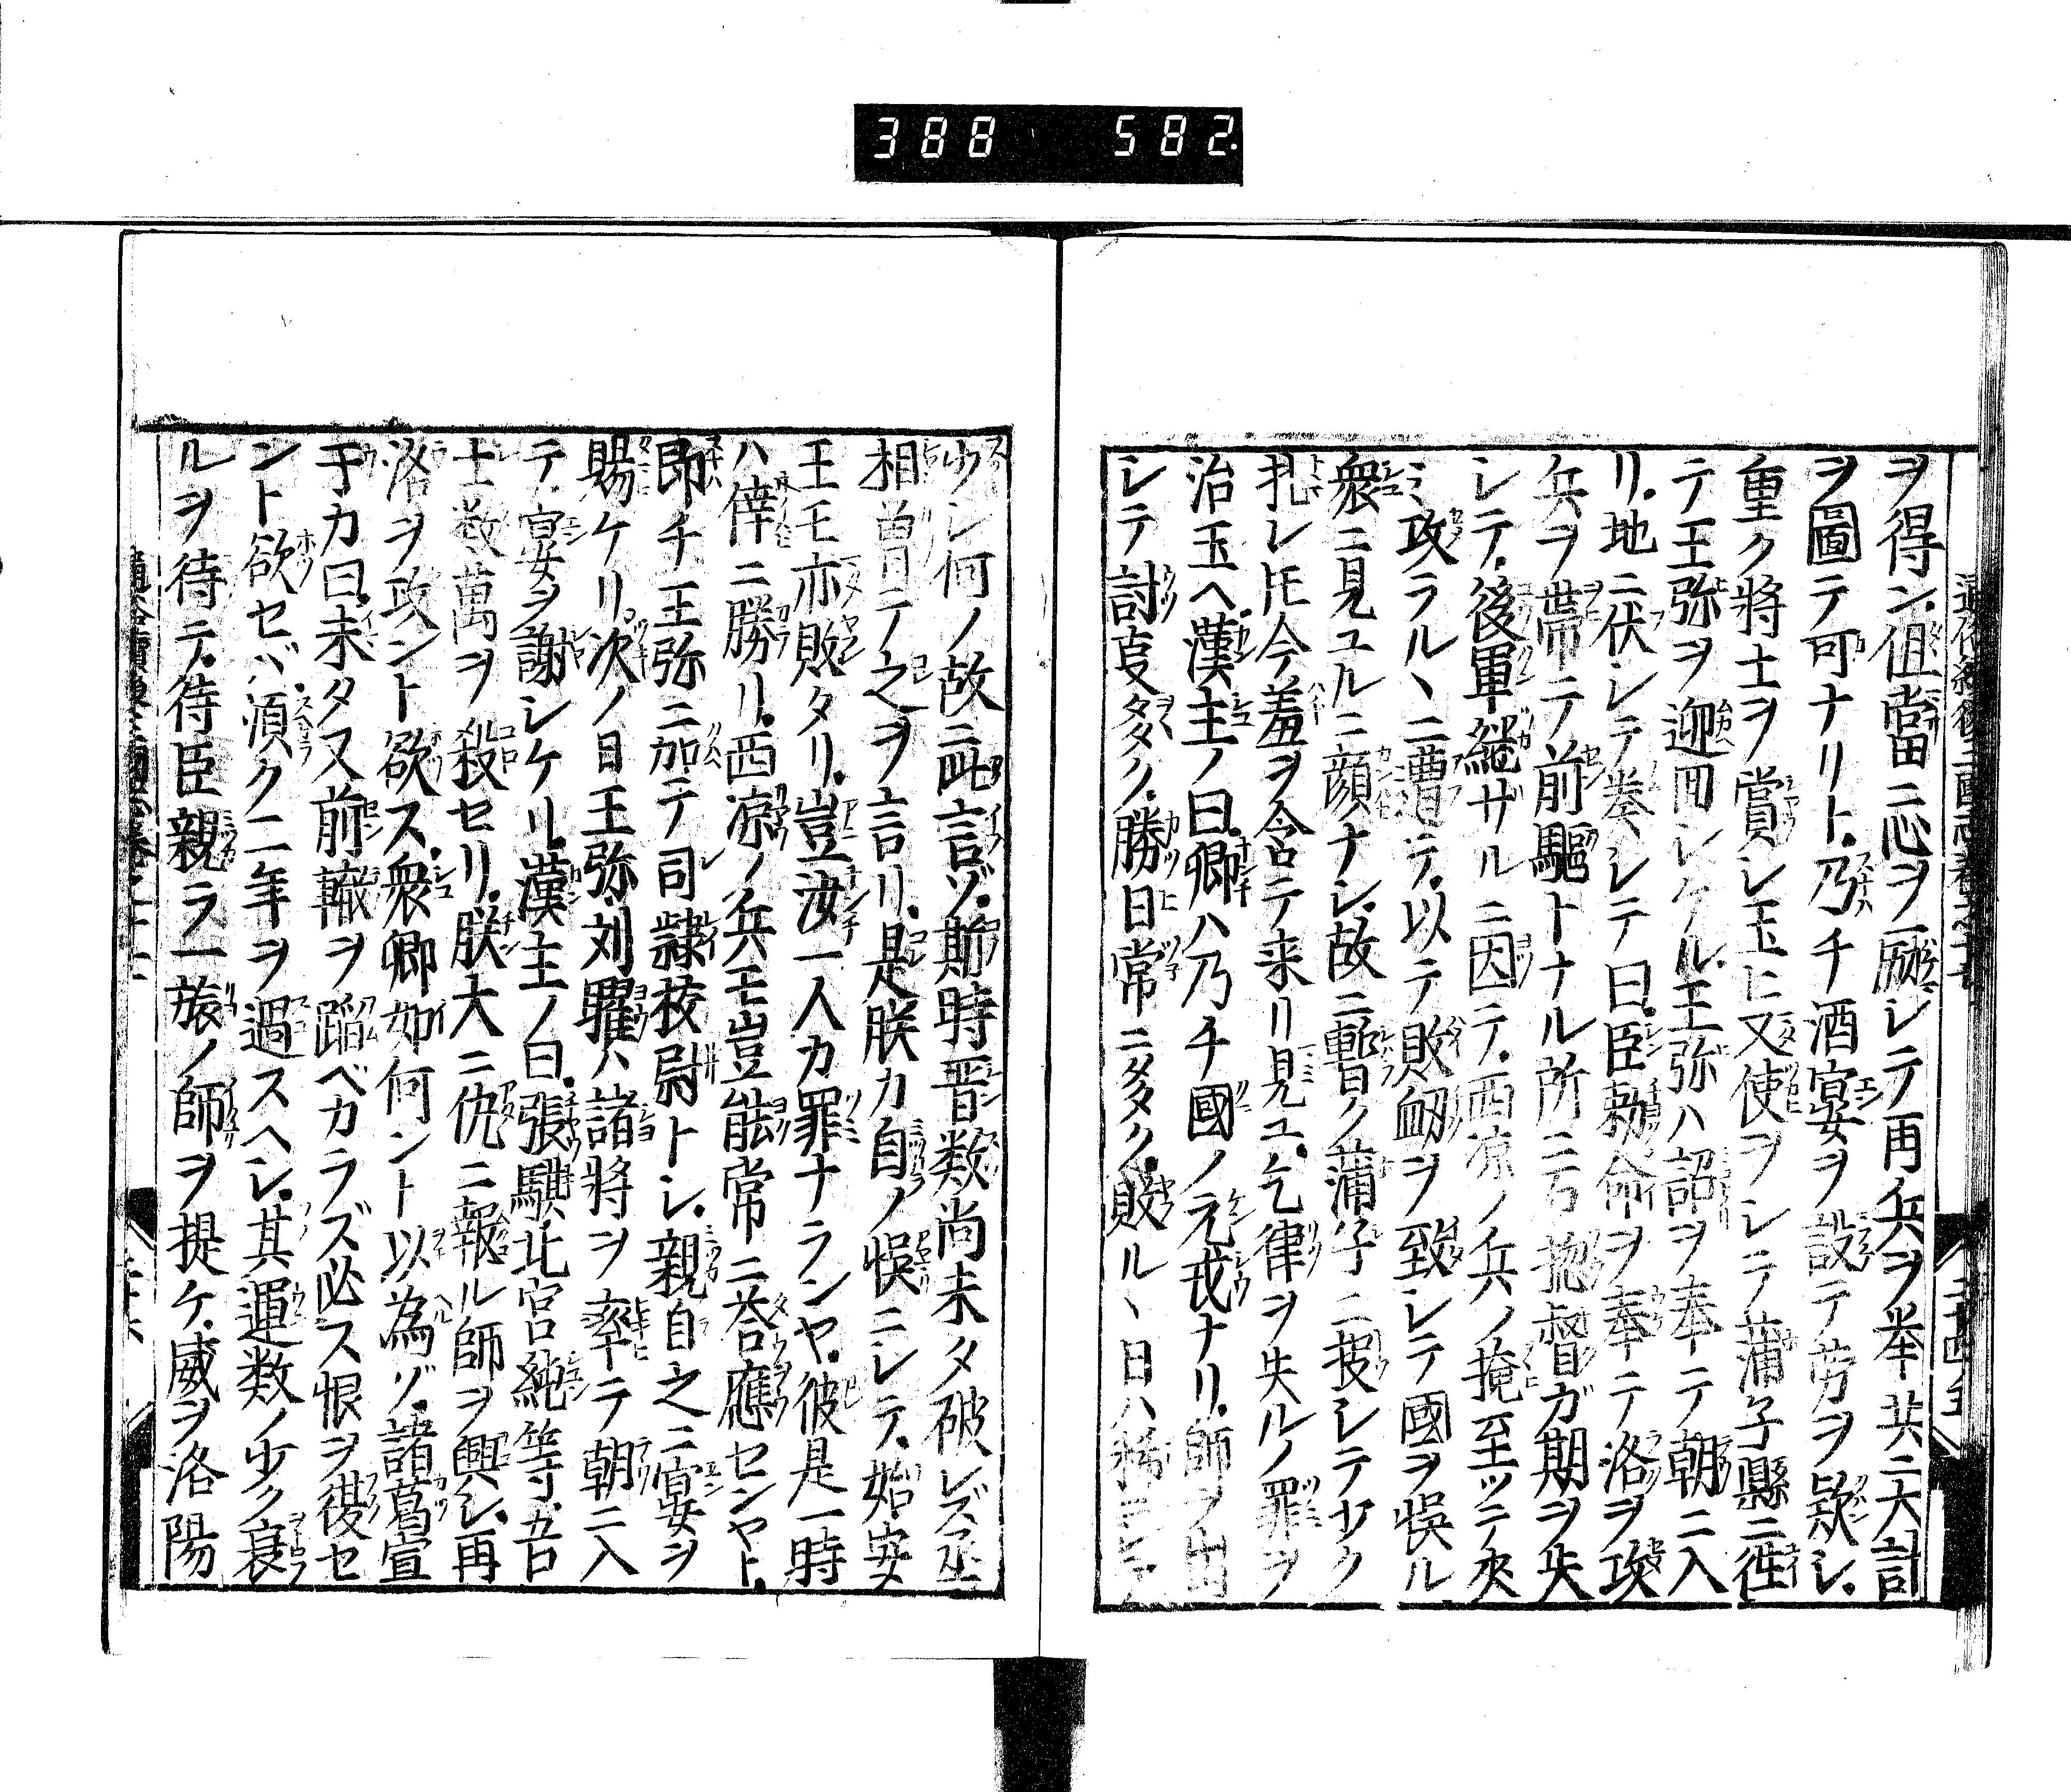 388 582
ヲ得ン但當ニ心ヲ𢙣シテ再兵ヲ举共ニ大計
ヲ圖テ可ナリト乃チ酒宴ヲ設テ労ヲ欵シ
重ク將士ヲ賞シ玉ヒ又使ヲシテ蒲子縣ニ徃
テ王弥ヲ迎囬シケル王弥ハ詔ヲ奉テ朝ニ入
リ地ニ伏シテ奏シテ曰臣勅命ヲ奉テ洛ヲ攻
兵ヲ帶テ前驅トナル所ニ総督ガ期ヲ失
シテ後軍継サルニ因テ西凉ノ兵ノ掩至ツテ夾
ミ攻ラルヽニ遭テ以テ敗衂ヲ致シテ國ヲ悞ル
衆ニ見ユルニ顔ナシ故ニ暫ク蒲子ニ投シテ少ク
扎レ𪜈今羞ヲ含テ来リ見ユ乞律ヲ失ルノ罪ヲ
治玉ヘ漢主ノ曰卿ハ乃チ國ノ元戎ナリ師ヲ出
シテ討㕝多ク勝日常ニ多ク敗ルヽ日ハ稀ニシテ
少シ何ノ故ニ此言ゾ斯時晋数尚未タ破レズ丞
相曽テ之ヲ言リ是朕カ自ノ悞ニシテ始安
王モ亦敗タリ豈汝一人カ罪ナランヤ彼是一時
ハ倖ニ勝リ西凉ノ兵モ豈能常ニ荅應センヤト
即チ王弥ニ加テ司隷校尉トシ親自之ニ宴ヲ
賜ケリ次ノ日王弥刘曜ハ諸將ヲ率テ朝ニ入
テ宴ヲ謝シケル漢主ノ曰張騏北宮純等吾
士数萬ヲ殺セリ朕大ニ仇ニ報ル師ヲ興シ再
洛ヲ攻ント欲ス衆卿如何ント以為ゾ諸葛宣
于カ曰未タ又前轍ヲ蹈ベカラズ必ス恨ヲ復セ
ント欲セバ須ク二年ヲ過スヘシ其運数ノ少ク衰
ルヲ待テ待臣親ラ一旅ノ師ヲ提ケ威ヲ洛陽